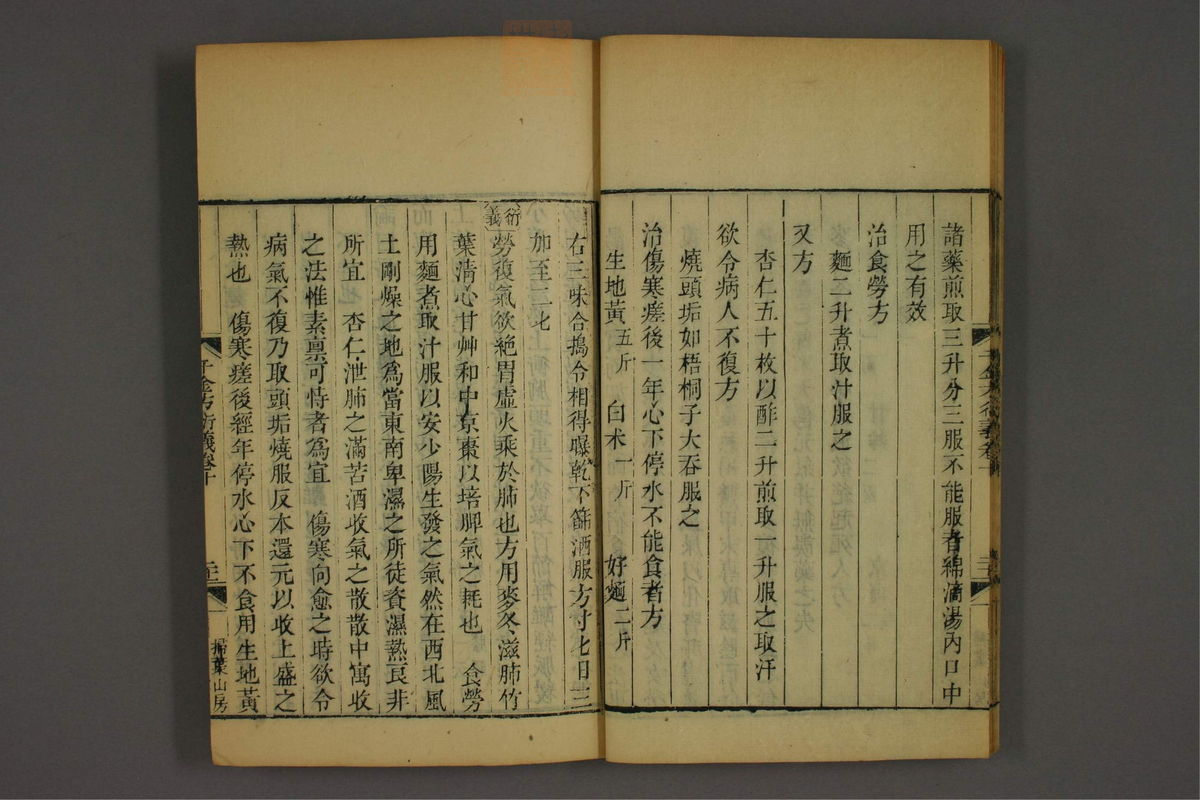 諸藥煎取三升分三服不能服者綿滴湯內口中
用之有效
治食勞方
麵二升煮取汁服之
又方
杏仁五十枚以酢二升煎取一升服之取汗
欲令病人不復方
燒頭垢如梧桐子大吞服之
治傷寒瘥後一年心下停水不能食者方
生地黃五斤 白朮一斤 好麵二斤
右三味合搗令相得曝乾下篩酒服方寸匕日三
加至二匕
衍義
勞復氣欲絕胃虛火乘於肺也方用麥冬滋肺竹
葉清心甘艸和中京棗以培脾氣之耗也 食勞
用麵煮取汁服以安少陽生發之氣然在西北風
土剛燥之地為當東南卑濕之所徒資濕熱良非
所宜 杏仁泄肺之滿苦酒收氣之散散中寓收
之法惟素禀可恃者為宜 傷寒向愈之時欲令
病氣不復乃取頭垢燒服反本還元以收上盛之
熱也 傷寒瘥後經年停水心下不食用生地黃
千金方衍義卷十
掃葉山房